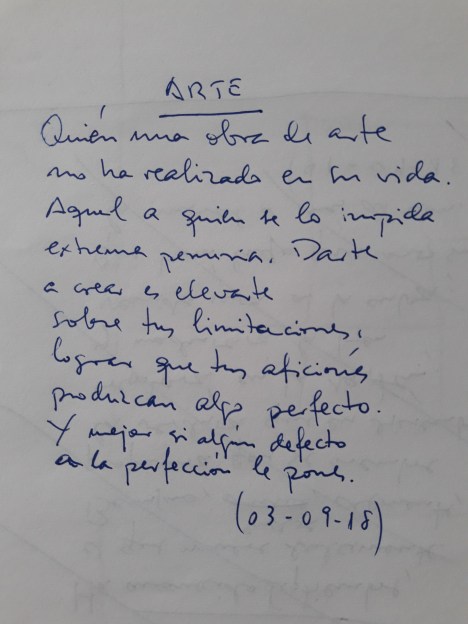 ARTE
Quién una obra de arte
no ha realizado en su vida.
Aquel a quien se lo impida
extrema penuria. Darte
a crear es elevarte
sobre tus limitaciones,
lograr que tus aficiones
produzcan algo perfecto.
Y mejor si algún defecto
a la perfección le pones.
(03-09-18)